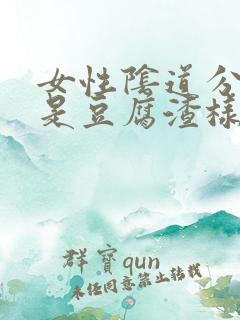 女性陰道分
是豆腐渣樣
群寶qun
未經同意禁止轉載